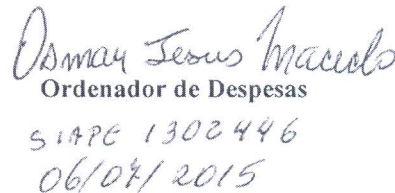 Osmar Jesus Macedo
Ordenador de Despesas
SIAPE 1302446
06/07/2015